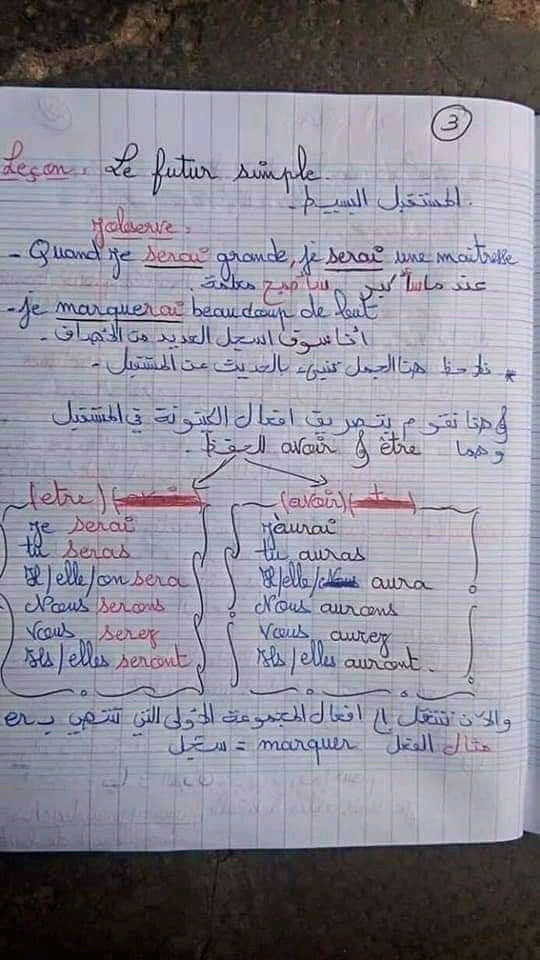 3
Leçon: Le futur simple.
المستقبل البسيط.
J'observe:
- Quand je serai grande, je serai une maitresse
عند ما سأكبر سأصبح معلمة.
- Je marquerai beaucoup de but
أنا سوف اسجل العديد من الاهداف -
* نلاحظ هنا الجمل تبتدىء بالحديث عن المستقبل -
وهنا نقوم بتصريف افعال الكينونة في المستقبل
وهما être و avoir للحفظ.
(etre) (avoir)
Je serai J'aurai
tu seras tu auras
Il/elle/on sera Il/elle/ aura
Nous serons Nous aurons
Vous serez Vous aurez
Ils/elles seront Ils/elles auront.
والآن ننتقل الى افعال المجموعة الاولى التي تنتهي ب er
مثال الفعل marquer = سجل